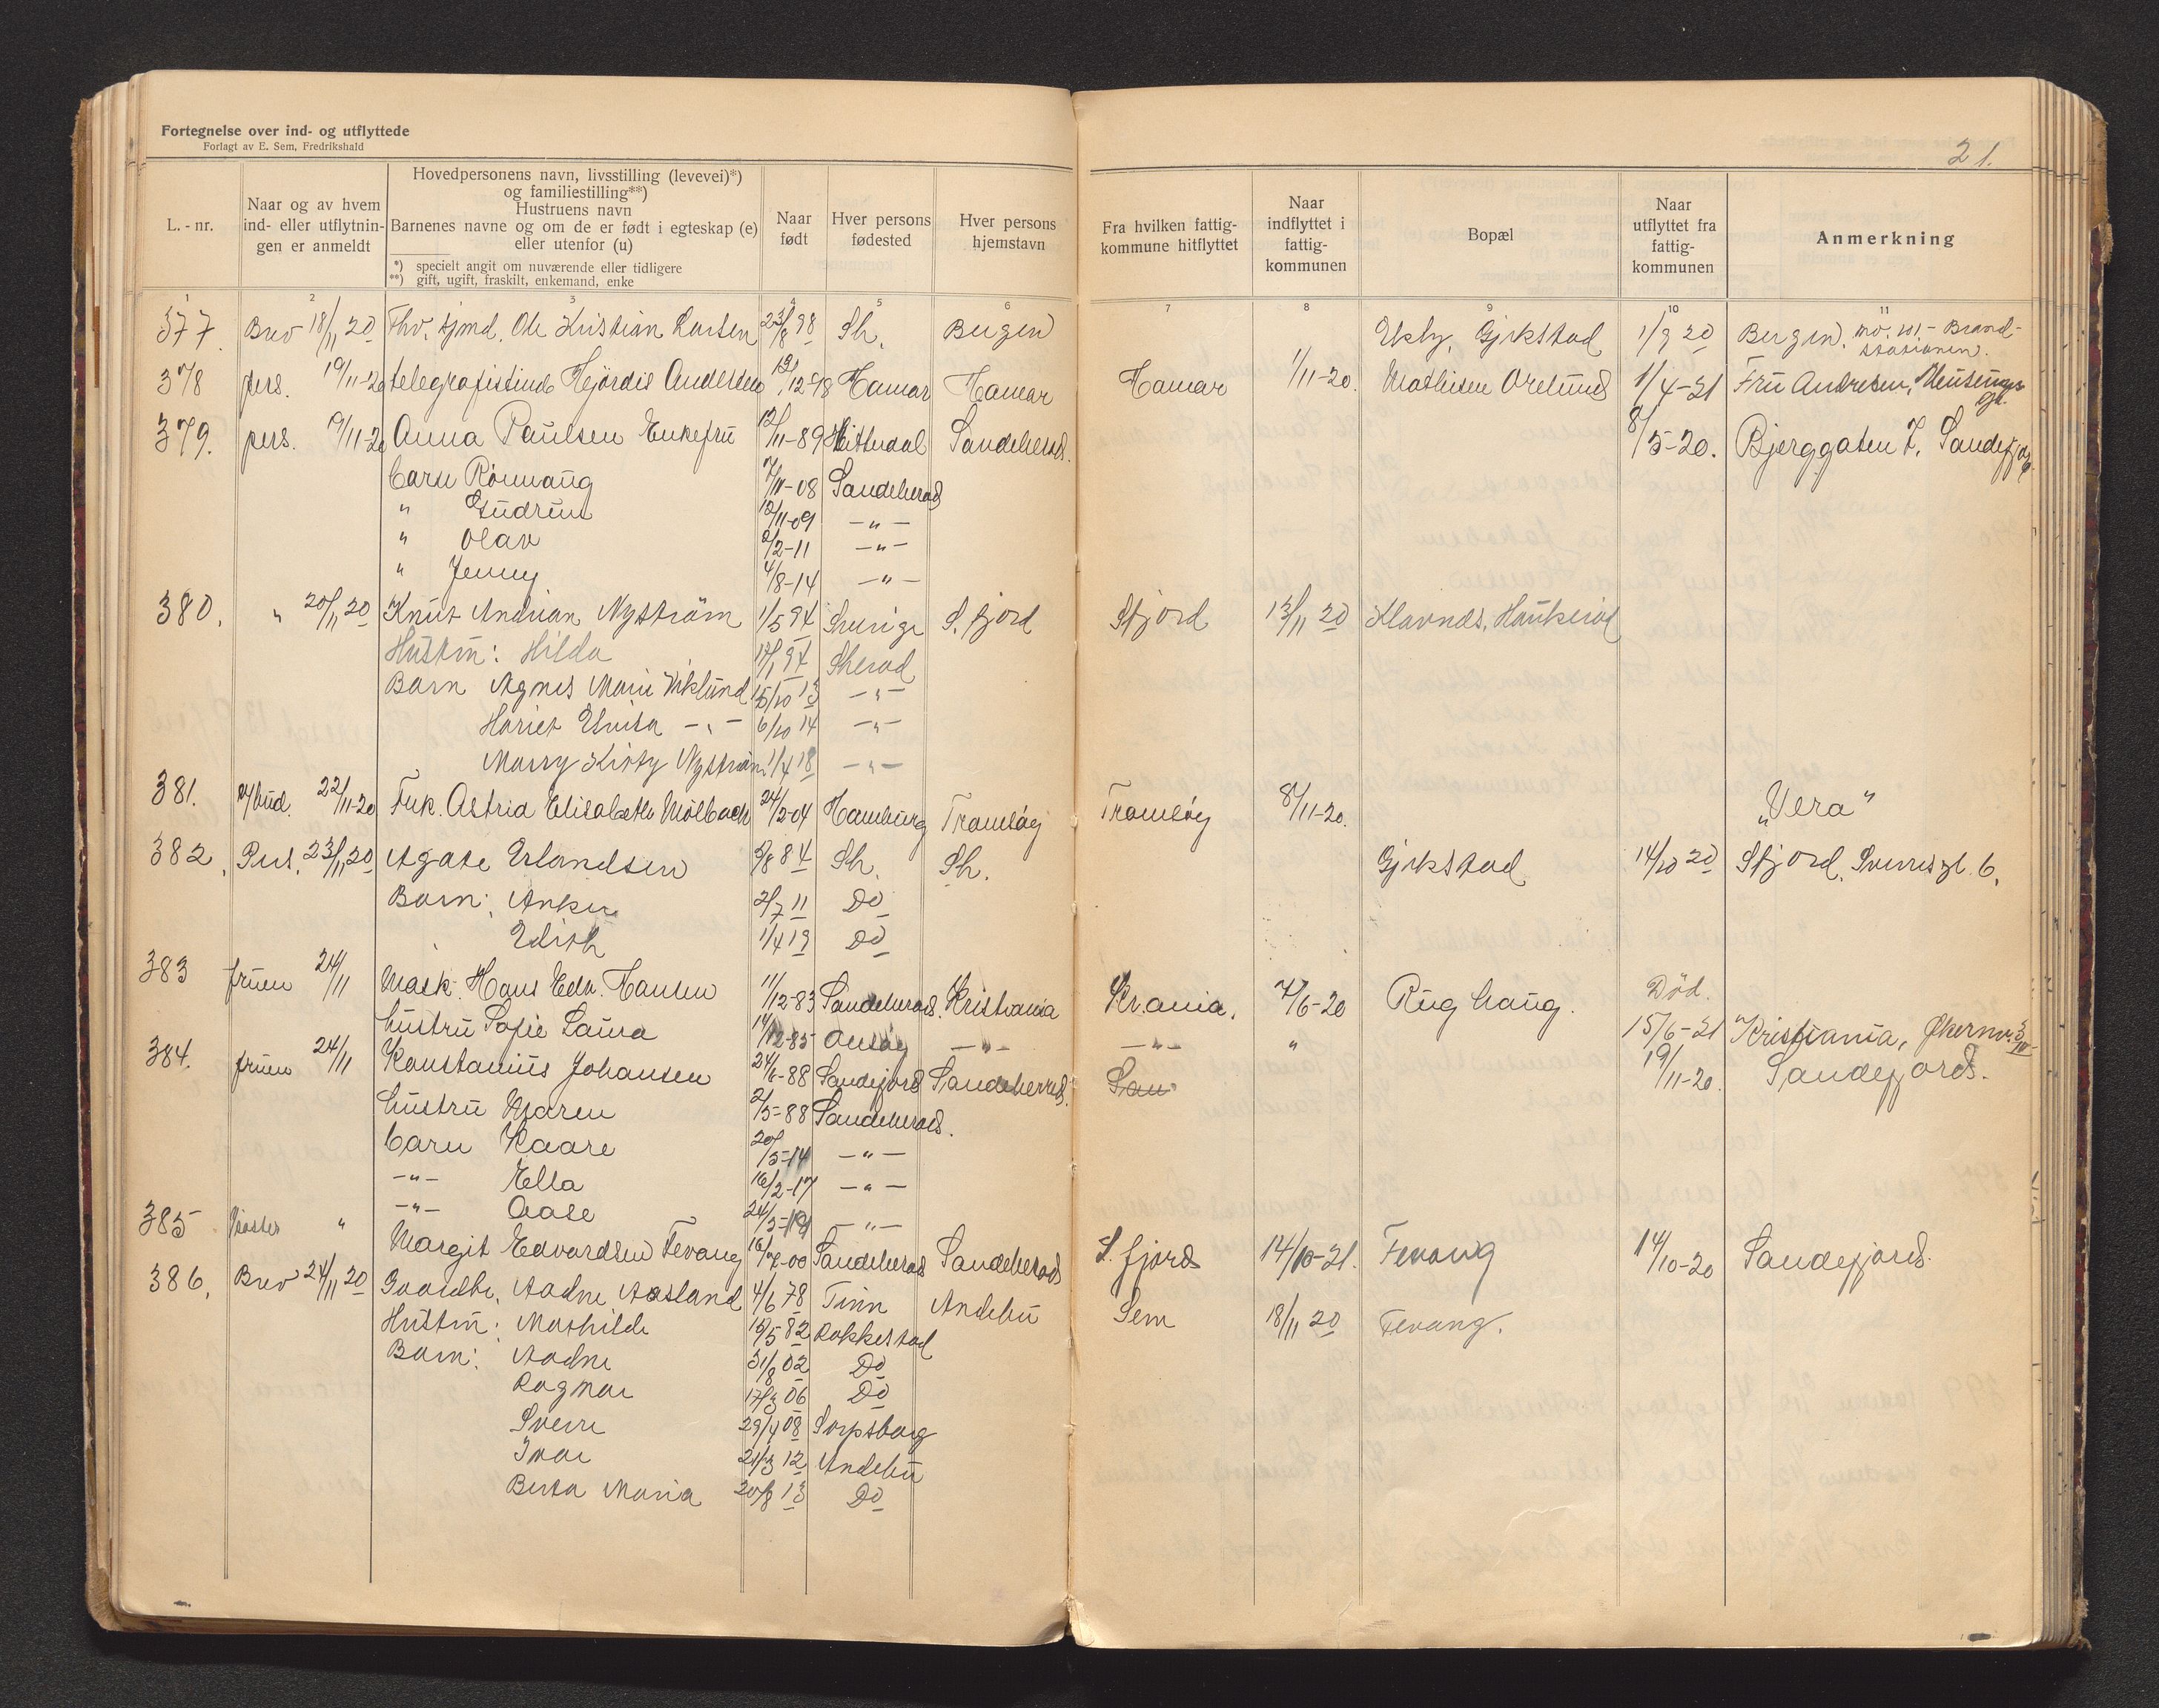 Fortegnelse over ind- og utflyttede
Forlagt av E. Sem, Fredrikshald
21.
L.-nr.
Naar og av hvem ind- eller utflytningen er anmeldt
Hovedpersonens navn, livsstilling (levevei)*)
og familiestilling**)
Hustruens navn
Barnenes navne og om de er født i egteskap (e)
eller utenfor (u)
*) specielt angit om nuværende eller tidligere
**) gift, ugift, fraskilt, enkemand, enke
Naar født
Hver persons fødested
Hver persons hjemstavn
Fra hvilken fattigkommune hitflyttet
Naar indflyttet i fattigkommunen
Bopæl
Naar utflyttet fra fattigkommunen
Anmerkning
1 2 3 4 5 6 7 8 9 10 11
377. Brev 18/11 20 Fhv. sjmd. Ole Kristian Larsen 23/8 98 Sh. Bergen Gjekstad 1/9 20 Bergen. Brand-
stasionen.
378 pers. 19/11-20 telegrafistinde Hjørdis Andersen Hamar Hamar Hamar 1/11-20. Mathisen 1/4-21 Fru Andresen,
379. pers. 19/11-20 Anna Paulsen Enkefru 12/11-89 Hitterdal Sandeherad. 8/5-20. Bjerggaten 7, Sandefjord
barn Rønnaug 7/11-08 Sandeherad
" Gudrun 10/11-09 —"—
" Olav 2/2-11 —"—
" Jenny 4/8-14 —"—
380. " 20/11 20 Knut Andrian Nyström 1/5 94 Sverige S. fjord Sfjord 13/11 20 Klavnes, Haukerød
Hustru: Hilda 94 Sherad
Barn Agnes Marie Viklund 15/10 13 —"—
Hariet Elvira —"— 6/10 14 —"—
Marry Kirsty Nyström 1/4 18 —"—
381. v/bud. 22/11-20 Frk. Astrid Elisabeth Mølbach 24/2-04 Hamburg Tromsøy Tromsøy 8/11-20. „Vera“
382. Pers. 23/11 20 Agate Erlandsen 5/8 84 Sh. Sh. Gjekstad 14/10 20 Sfjord, Sverresgt. 6.
Barn: Anker 2/7 11 Do
Edith 1/4 19 Do
383 fruen 24/11 Mask. Hans Edv. Hansen 11/12-83 Sandeherad. Kristiania Kr.ania. 7/6-20 Rughaug. Død.
hustru Sofie Laura 14/12-85 Onsøy —"— —"— " 15/6-21 Kristiania,
384. fruen 24/11 Konstanius Johansen 24/6-88 Sandefjord Sandeherred. San 19/11-20. Sandefjord.
hustru Maren 2/5-88 Sandeherad.
barn Kaare 20/5-14 —"—
—"— Ella 16/2-17 —"—
—"— Aase 24/5-19 —"—
385 " Margit Edvardsen Fevang 16/7-00 Sandeherad Sandeherad S. fjord 14/10-21. Fevang 14/10-20 Sandefjord.
386. Brev 24/11 20 Gaardbr. Aadne Aasland 4/6 78 Tinn Andebu Sem 18/11 20 Fevang.
Hustru: Mathilde 19/5 82 Rakkestad
Barn: Aadne 31/8 02 Do
Ragnar 17/3 06 Do
Sverre 29/4 08 Sarpsborg
Ivar 21/3 12 Andebu
Berta Maria 20/8 13 Do